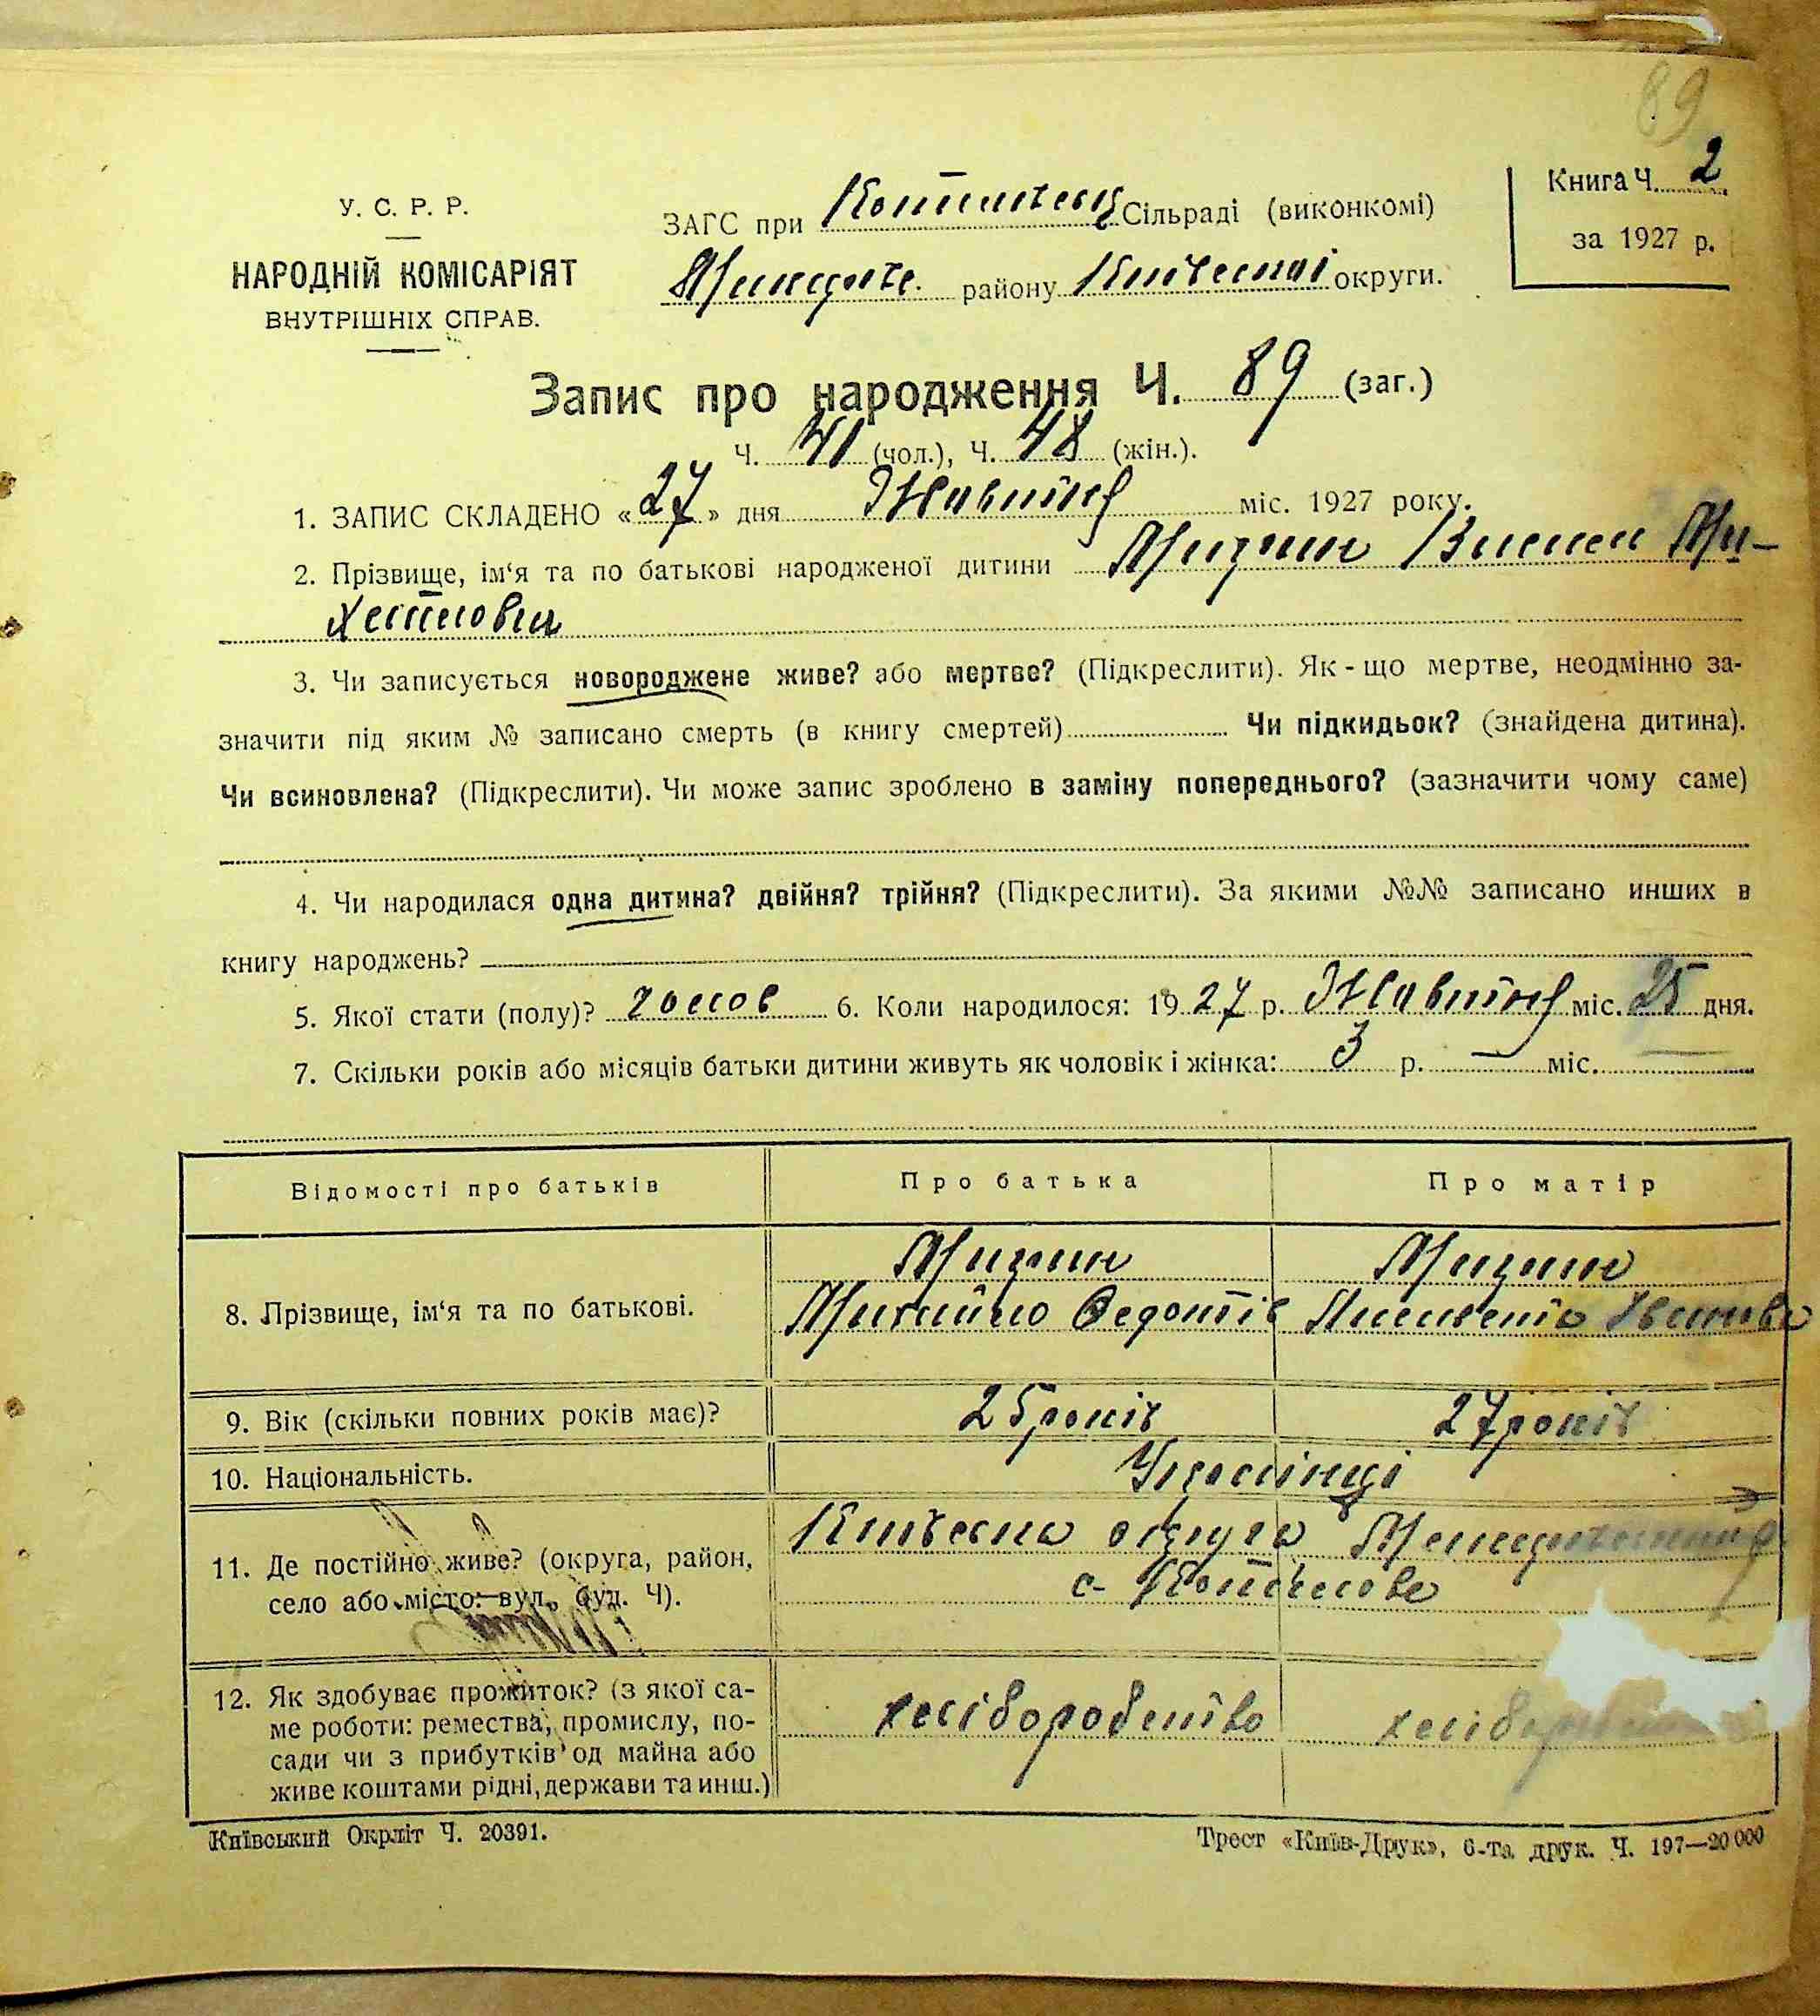 89
Книга Ч. 2
за 1927 р.
У. С. Р. Р.
НАРОДНІЙ КОМІСАРІЯТ
ВНУТРІШНІХ СПРАВ.
ЗАГС при Сільраді (виконкомі)
району Київської округи.
Запис про народження Ч. 89 (заг.)
Ч. 41 (чол.), Ч. 48 (жін.).
1. ЗАПИС СКЛАДЕНО «27» дня Жовтня міс. 1927 року.
2. Прізвище, ім‘я та по батькові народженої дитини Ми-
хайлович
3. Чи записується новороджене живе? або мертве? (Підкреслити). Як-що мертве, неодмінно за-
значити під яким № записано смерть (в книгу смертей) Чи підкидьок? (знайдена дитина).
Чи всиновлена? (Підкреслити). Чи може запис зроблено в заміну попереднього? (зазначити чому саме)
4. Чи народилася одна дитина? двійня? трійня? (Підкреслити). За якими №№ записано инших в
книгу народжень?
5. Якої стати (полу)? чолов 6. Коли народилося: 1927 р. Жовтня міс. 25 дня.
7. Скільки років або місяців батьки дитини живуть як чоловік і жінка: 3 р. — міс.
Відомості про батьків Про батька Про матір
8. Прізвище, ім‘я та по батькові.
Михайло Федотів
9. Вік (скільки повних років має)? 25 років 27 років
10. Національність. Українці
11. Де постійно живе? (округа, район, Київська округа
село або місто: вул., буд. Ч). с.
12. Як здобуває прожиток? (з якої са-
ме роботи: ремества, промислу, по- хліборобство
сади чи з прибутків од майна або
живе коштами рідні, держави та инш.)
Київський Окрліт Ч. 20391.
Трест «Київ-Друк», 6-та друк. Ч. 197—20 000